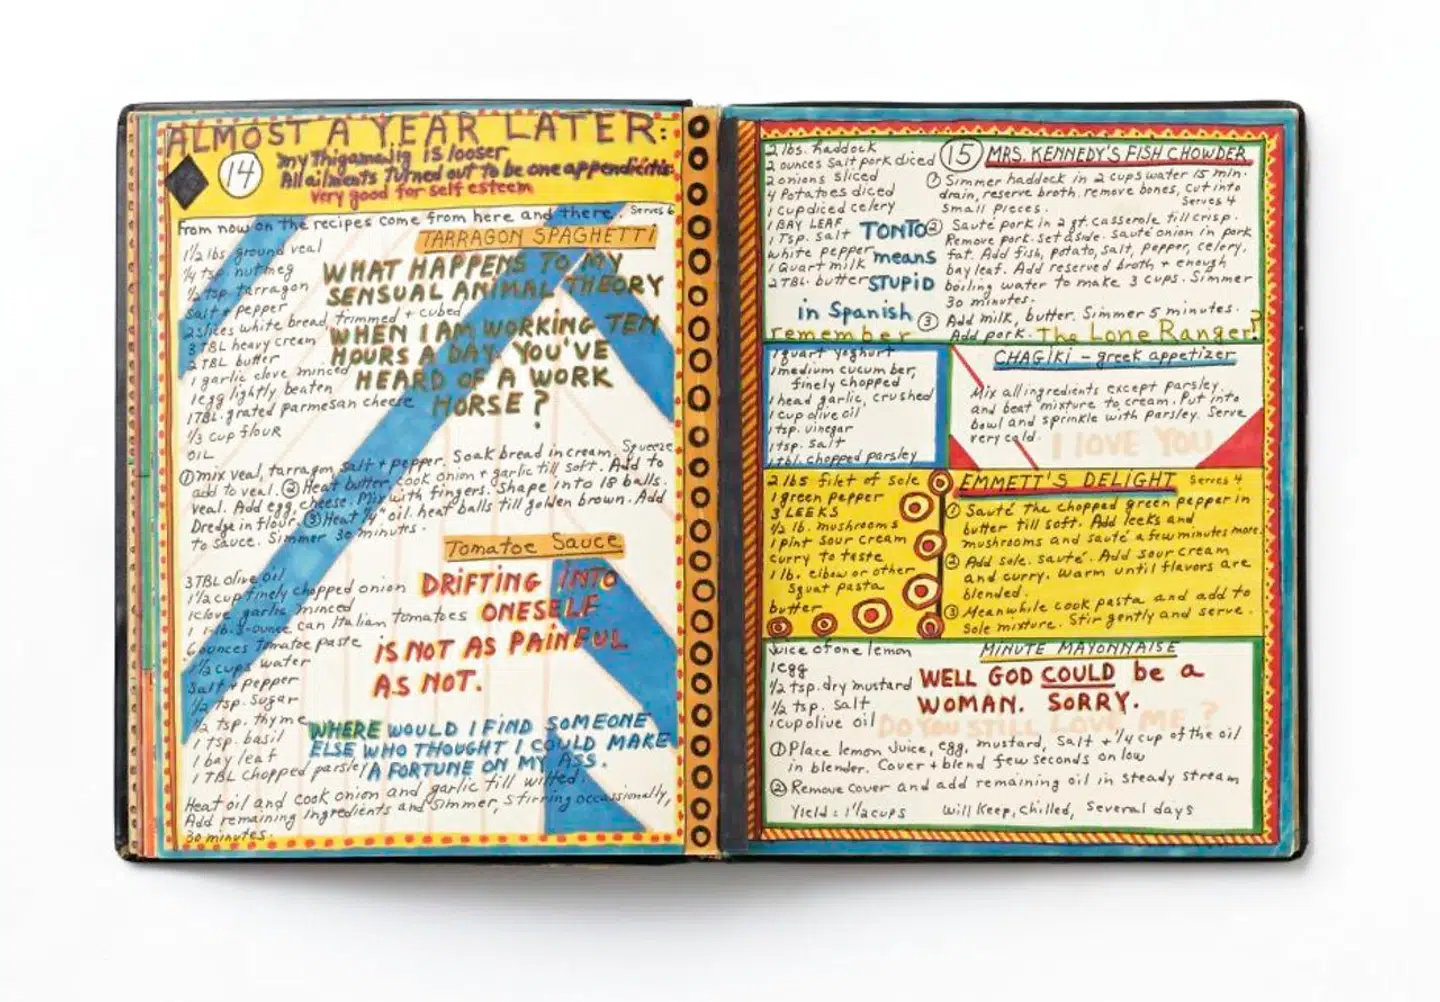 ALMOST A YEAR LATER:
14
my Thigamajig is looser
All ailments Turned out to be one appendicitis
very good for self esteem
From now on the recipes come from here and there. Serves 6
TARRAGON SPAGHETTI
1 1/2 lbs ground veal
1/4 tsp. nutmeg
1/2 tsp. tarragon
salt + pepper
2 slices white bread, trimmed + cubed
3 TBL heavy cream
2 TBL butter
1 garlic clove minced
1 egg lightly beaten
1 TBL. grated parmesan cheese
1/3 cup flour
OIL
WHAT HAPPENS TO MY
SENSUAL ANIMAL THEORY
WHEN I AM WORKING TEN
HOURS A DAY. YOU'VE
HEARD OF A WORK
HORSE?
① mix veal, tarragon, salt + pepper. Soak bread in cream. Squeeze
add to veal. ② Heat butter, cook onion + garlic till soft. Add to
veal. Add egg, cheese. Mix with fingers. Shape into 18 balls.
Dredge in flour. ③ Heat 1/4" oil. heat balls till golden brown. Add
to sauce. Simmer 30 minutes.
Tomatoe Sauce
3 TBL olive oil
1 1/2 cup finely chopped onion
1 clove garlic minced
1 1-lb. 3-ounce can Italian tomatoes
6 ounces Tomatoe paste
1 1/2 cups water
Salt + Pepper
1/2 tsp. Sugar
1/2 tsp. thyme
1 tsp. basil
1 bay leaf
1 TBL chopped parsley
DRIFTING INTO
ONESELF
IS NOT AS PAINFUL
AS NOT.
WHERE WOULD I FIND SOMEONE
ELSE WHO THOUGHT I COULD MAKE
A FORTUNE ON MY ASS.
Heat oil and cook onion and garlic till wilted.
Add remaining ingredients and simmer, stirring occassionally,
30 minutes.
15 MRS. KENNEDY'S FISH CHOWDER
2 lbs. haddock
2 ounces Salt pork diced
2 onions sliced
4 Potatoes diced
1 cup diced celery
1 BAY LEAF
1 Tsp. Salt
white pepper
1 Quart milk
2 TBL. butter
TONTO
means
STUPID
in Spanish
remember
The Lone Ranger?
① Simmer haddock in 2 cups water 15 min.
drain, reserve broth. remove bones, cut into
small pieces.
Serves 4
② Sauté pork in 2 qt. casserole till crisp.
Remove pork. set aside. sauté onion in pork
fat. Add fish, potato, salt, pepper, celery.
bay leaf. Add reserved broth + enough
boiling water to make 3 cups. Simmer
30 minutes.
③ Add milk, butter. Simmer 5 minutes.
Add pork.
CHAGIKI - greek appetizer
1 quart yoghurt
1 medium cucumber,
finely chopped
1 head garlic, crushed
1 cup olive oil
1 tsp. vinegar
1 tsp. salt
1 tbl. chopped parsley
Mix all ingredients except parsley.
and beat mixture to cream. Put into
bowl and sprinkle with parsley. Serve
very cold.
I LOVE YOU
EMMETT'S DELIGHT Serves 4
2 lbs filet of sole
1 green pepper
3 LEEKS
1/2 lb. mushrooms
1 pint sour cream
curry to taste
1 lb. elbow or other
squat pasta
butter
① Sauté the chopped green pepper in
butter till soft. Add leeks and
mushrooms and sauté a few minutes more.
② Add sole. sauté. Add sour cream
and curry. warm until flavors are
blended.
③ Meanwhile cook pasta and add to
sole mixture. Stir gently and serve.
MINUTE MAYONNAISE
Juice of one lemon
1 egg
1/2 tsp. dry mustard
1/2 tsp. salt
1 cup olive oil
WELL GOD COULD be a
WOMAN. SORRY.
DO YOU STILL LOVE ME?
① Place lemon juice, egg, mustard, salt + 1/4 cup of the oil
in blender. Cover + blend few seconds on low
② Remove cover and add remaining oil in steady stream
Yield: 1 1/2 cups will keep, chilled, several days